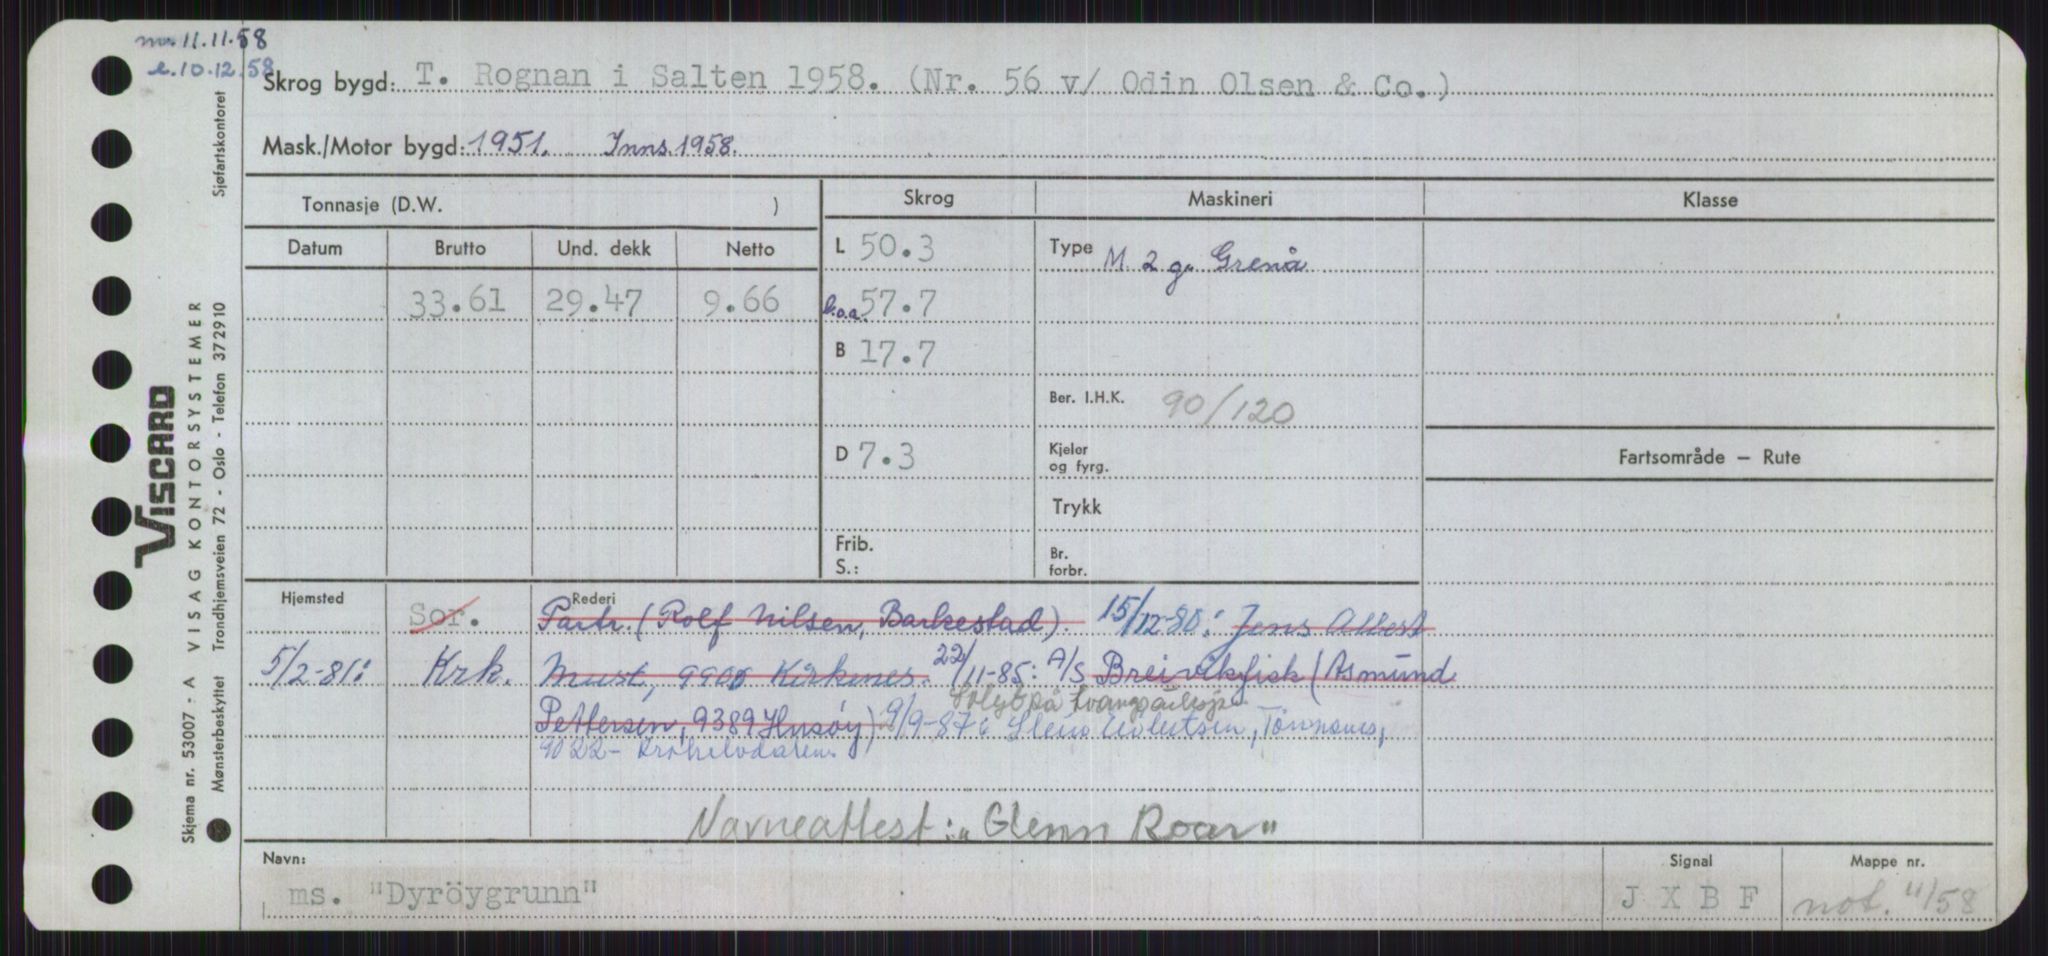 11.11.58
10.12.58
Skrog bygd: T. Rognan i Salten 1958. (Nr. 56 v/ Odin Olsen & Co.)
Mask./Motor bygd: 1951. Inns. 1958.
Tonnasje (D.W. )
Skrog
Maskineri
Klasse
Datum
Brutto
Und. dekk
Netto
L 50.3
Type M 2 g. Grenå
33.61
29.47
9.66
l.o.a. 57.7
B 17.7
Ber. I.H.K. 90/120
D 7.3
Kjeler
og fyrg.
Fartsområde – Rute
Trykk
Frib.
S.:
Br.
forbr.
Hjemsted
Sor.
Rederi
Partr. (Rolf Nilsen, Barkestad). 15/12-80: Jens Albert
5/2-81: Krk. Must, 9900 Kirkenes. 22/11-85: A/S Breivikfisk (Asmund
Solgt på tvangsauksjon
Pettersen, 9389 Husøy) 9/9-87: Tönnsnes,
9022- Krokelvdalen
Navneattest: „Glenn Roar"
Navn:
ms. "Dyröygrunn"
Signal
J X B F
Mappe nr.
not. 11/58
VISCARD
VISAG KONTORSYSTEMER
Skjema nr. 53007 - A
Mønsterbeskyttet
Trondhjemsveien 72 - Oslo - Telefon 372910
Sjøfartskontoret